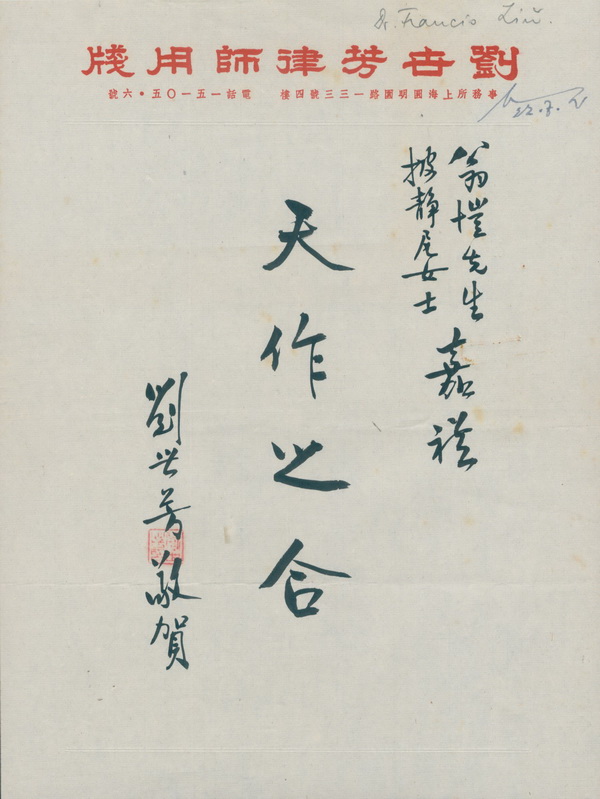 Dr. Francis Liu.
劉世芳律師用牋
事務所上海圓明園路一三三號四樓 電話一五一〇五·六號
翁愷先生
披靜尼女士
嘉禮
天作之合
劉世芳敬賀